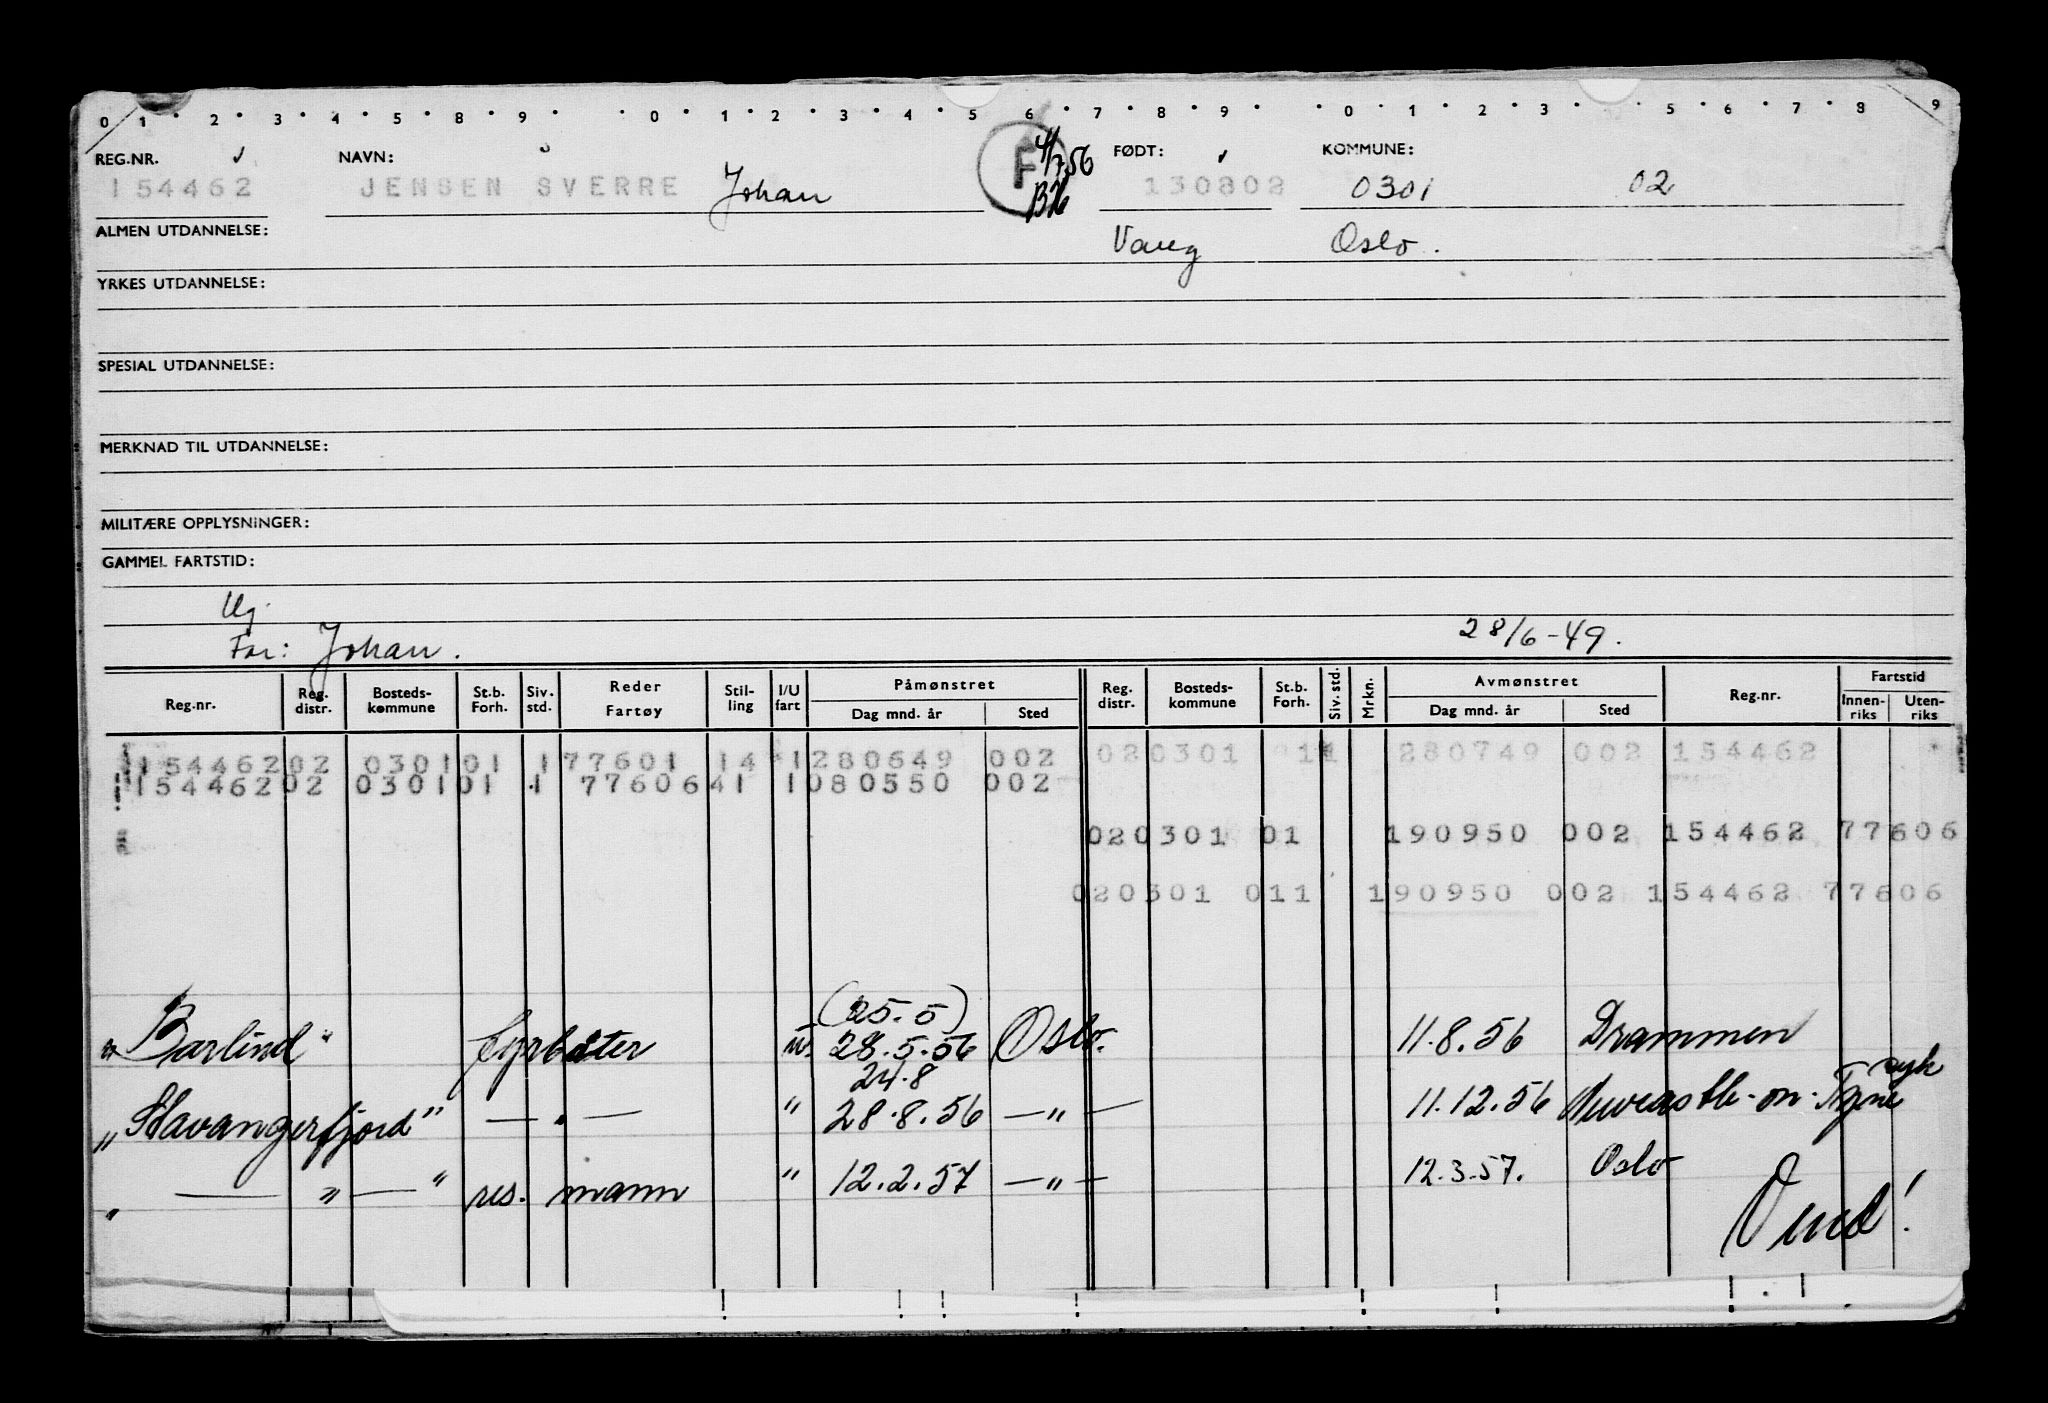 0 1 · 2 · 3 · 4 · 5 · 8 · 9 · · 0 · 1 · 2 · 3 · 4 · 5 · 6 · 7 · 8 · 9 · · 0 · 1 · 2 · 3 · · 5 · 6 · 7 · 8 · 9
REG.NR. NAVN: FØDT: KOMMUNE:
154462 JENSEN SVERRE Johan F 4/7.56 130802 0301 02
ALMEN UTDANNELSE: Vang Oslo.
YRKES UTDANNELSE:
SPESIAL UTDANNELSE:
MERKNAD TIL UTDANNELSE:
MILITÆRE OPPLYSNINGER:
GAMMEL FARTSTID:
Ug.
Far: Johan. 28/6-49.
Reg.nr. Reg. distr. Bosteds-kommune St.b. Forh. Siv. std. Reder Fartøy Stil-ling I/U fart Påmønstret Dag mnd. år Sted Reg. distr. Bosteds-kommune St.b. Forh. Siv. std. Mrkn. Avmønstret Dag mnd. år Sted Reg.nr. Fartstid Innen-riks Uten-riks
154462 02 0301 01 1 77601 14 1 280649 002 02 0301 01 1 280749 002 154462
154462 02 0301 01 1 77606 41 1 080550 002
02 0301 01 190950 002 154462 77606
02 0301 011 190950 002 154462 77606
(25.5)
"Barlind" fyrbøter u. 28.5.56 Oslo. 11.8.56 Drammen
24.8
"Stavangerfjord" — " — " 28.8.56 — " — 11.12.56 Newcastle-on-Tyne syk
" — " — " res. mann " 12.2.57 — " — 12.3.57. Oslo
Vend!